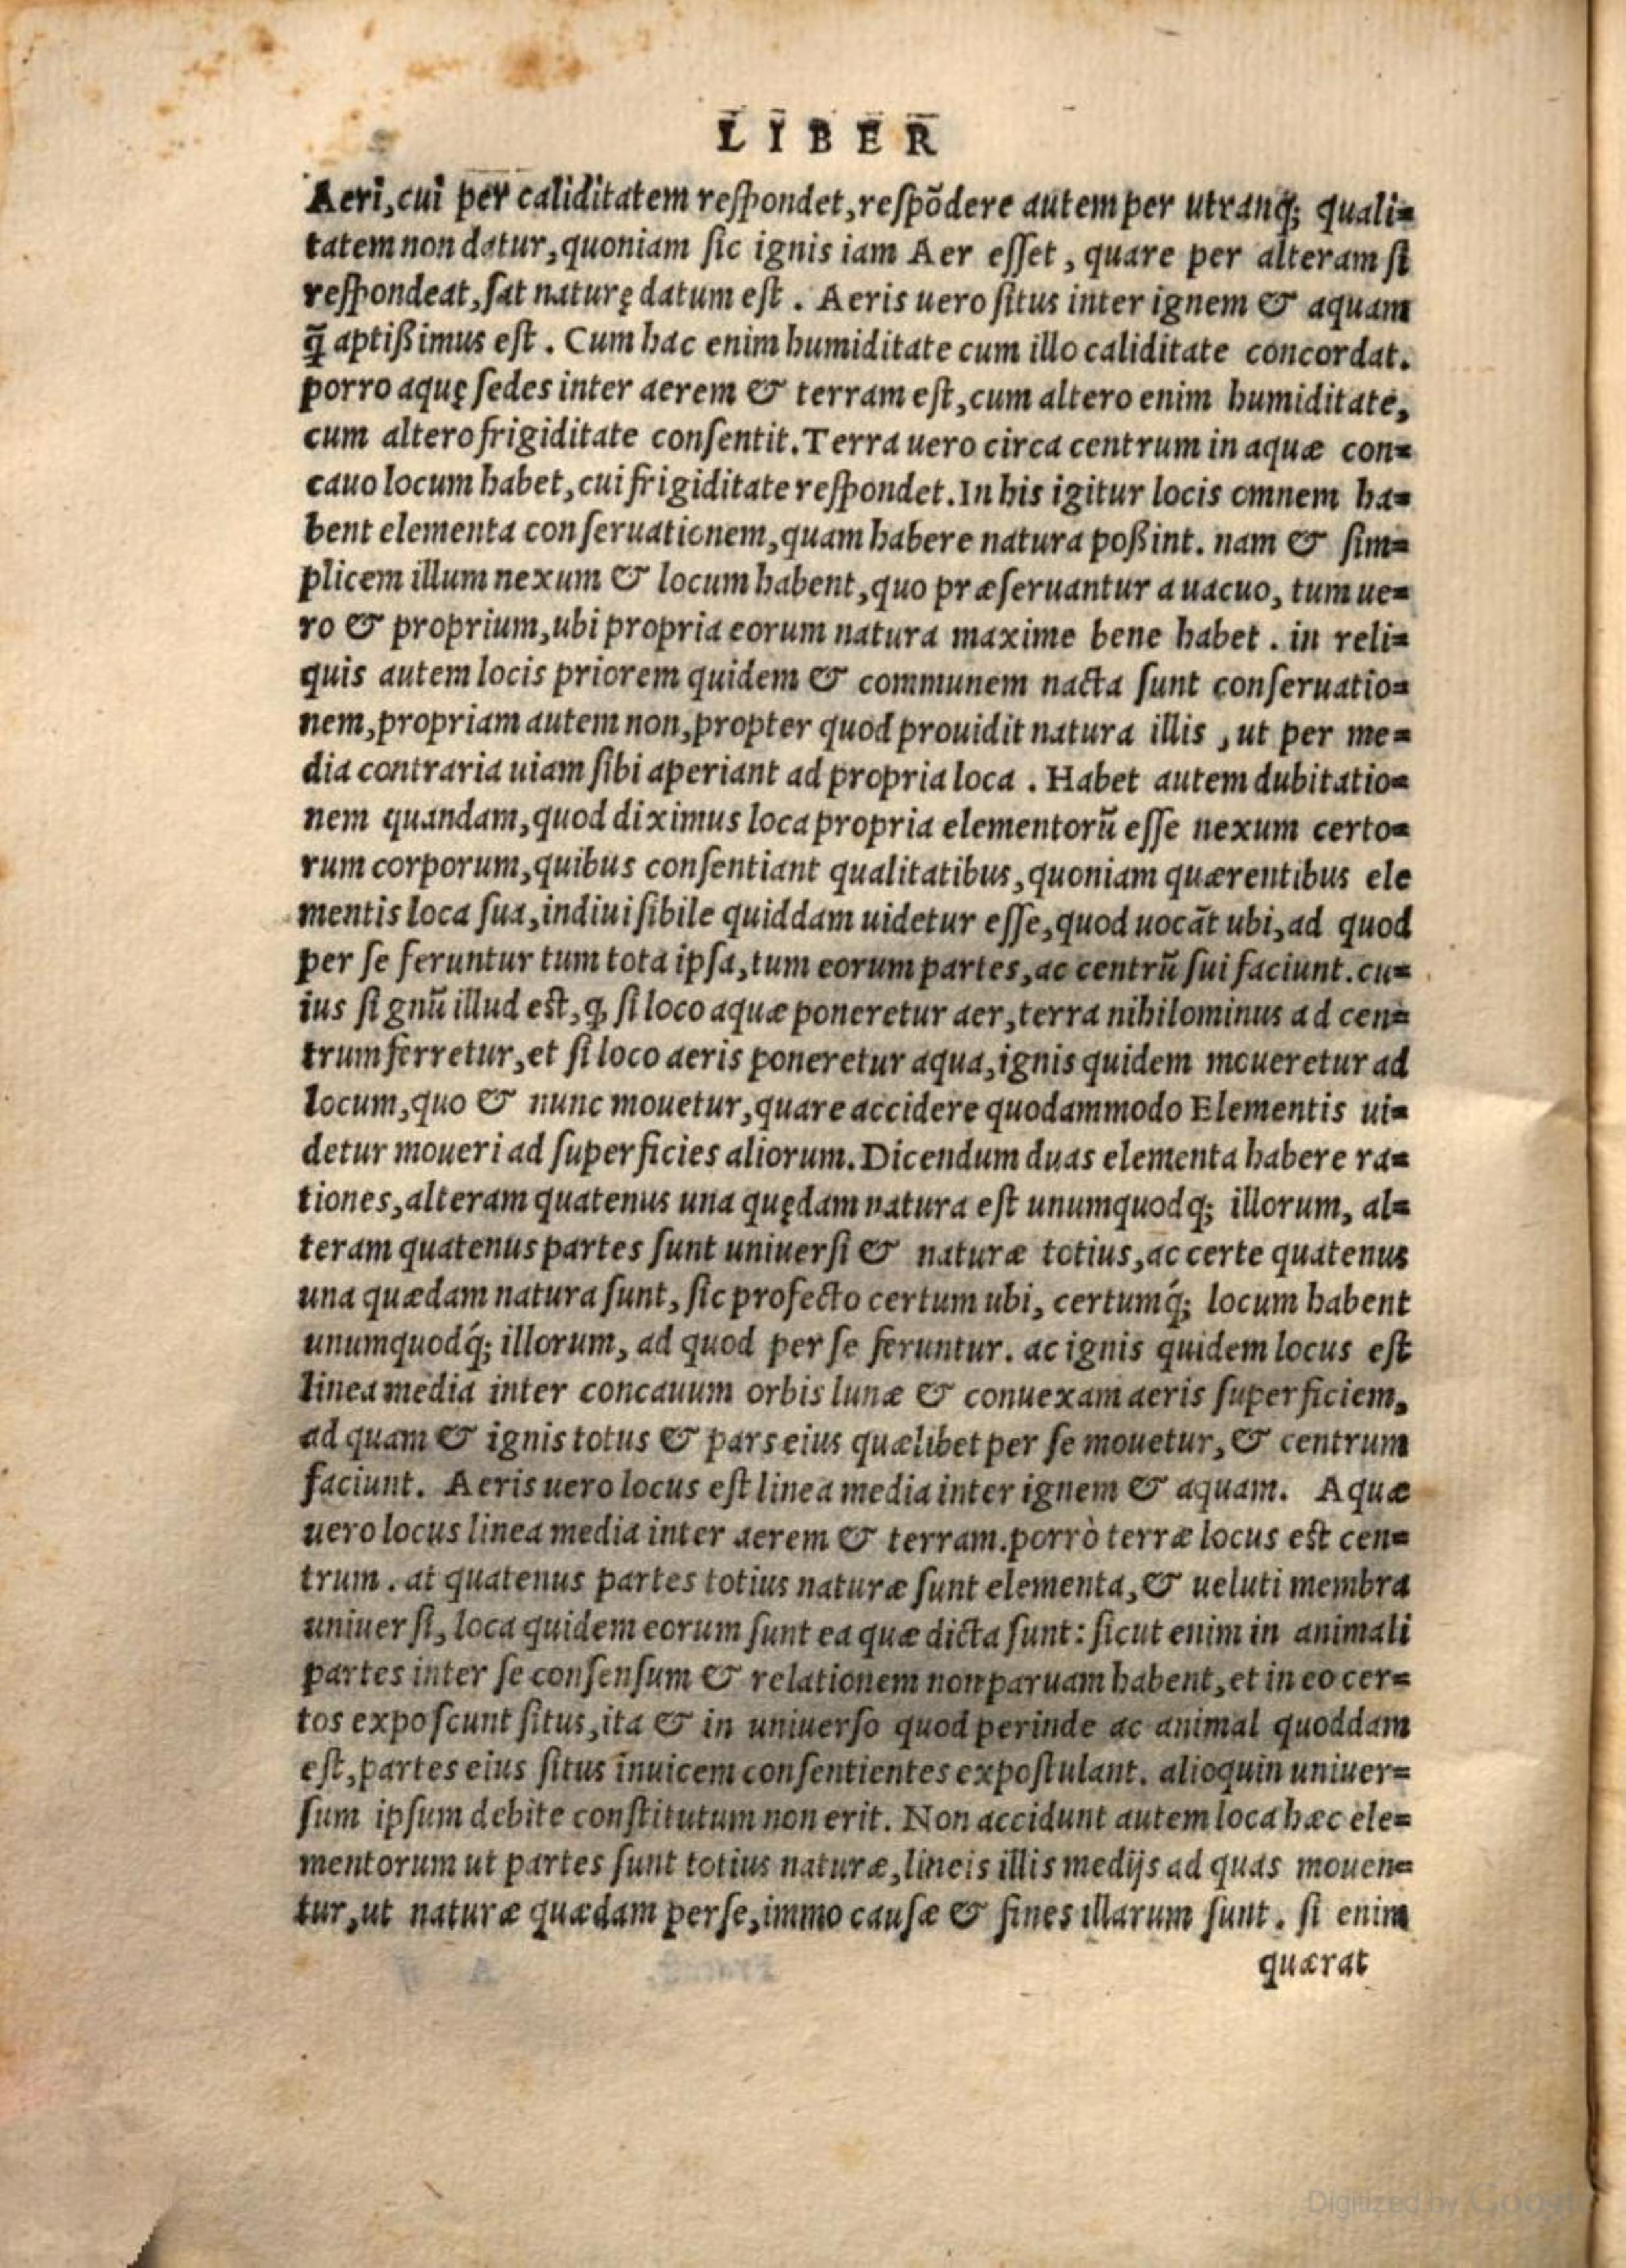 LIBER
Aeri, cui per caliditatem respondet, respōdere autem per utranq; quali=
tatem non datur, quoniam sic ignis iam Aer esset, quare per alteram si
respondeat, sat naturę datum est. Aeris uero situs inter ignem & aquam
q̄ aptißimus est. Cum hac enim humiditate cum illo caliditate concordat.
porro aquę sedes inter aerem & terram est, cum altero enim humiditate,
cum altero frigiditate consentit. Terra uero circa centrum in aquæ con=
cauo locum habet, cui frigiditate respondet. In his igitur locis omnem ha=
bent elementa conseruationem, quam habere natura poßint. nam & sim=
plicem illum nexum & locum habent, quo præseruantur a uacuo, tum ue=
ro & proprium, ubi propria eorum natura maxime bene habet. in reli=
quis autem locis priorem quidem & communem nacta sunt conseruatio=
nem, propriam autem non, propter quod prouidit natura illis, ut per me=
dia contraria uiam sibi aperiant ad propria loca. Habet autem dubitatio=
nem quandam, quod diximus loca propria elementorū esse nexum certo=
rum corporum, quibus consentiant qualitatibus, quoniam quærentibus ele
mentis loca sua, indiuisibile quiddam uidetur esse, quod uocāt ubi, ad quod
per se feruntur tum tota ipsa, tum eorum partes, ac centrū sui faciunt. cu=
ius signū illud est, ꝙ si loco aquæ poneretur aer, terra nihilominus ad cen=
trum ferretur, et si loco aeris poneretur aqua, ignis quidem moueretur ad
locum, quo & nunc mouetur, quare accidere quodammodo Elementis ui=
detur moueri ad superficies aliorum. Dicendum duas elementa habere ra=
tiones, alteram quatenus una quędam natura est unumquodq; illorum, al=
teram quatenus partes sunt uniuersi & naturæ totius, ac certe quatenus
una quædam natura sunt, sic profecto certum ubi, certumq́; locum habent
unumquodq́; illorum, ad quod per se feruntur. ac ignis quidem locus est
linea media inter concauum orbis lunæ & conuexam aeris superficiem,
ad quam & ignis totus & pars eius quælibet per se mouetur, & centrum
faciunt. Aeris uero locus est linea media inter ignem & aquam. Aquæ
uero locus linea media inter aerem & terram. porrò terræ locus est cen=
trum. at quatenus partes totius naturæ sunt elementa, & ueluti membra
uniuersi, loca quidem eorum sunt ea quæ dicta sunt: sicut enim in animali
partes inter se consensum & relationem non paruam habent, et in eo cer=
tos exposcunt situs, ita & in uniuerso quod perinde ac animal quoddam
est, partes eius situs inuicem consentientes expostulant. alioquin uniuer=
sum ipsum debite constitutum non erit. Non accidunt autem loca hæc ele=
mentorum ut partes sunt totius naturæ, lineis illis medijs ad quas mouen=
tur, ut naturæ quædam per se, immo causæ & fines illarum sunt. si enim
quærat
Digitized by Google